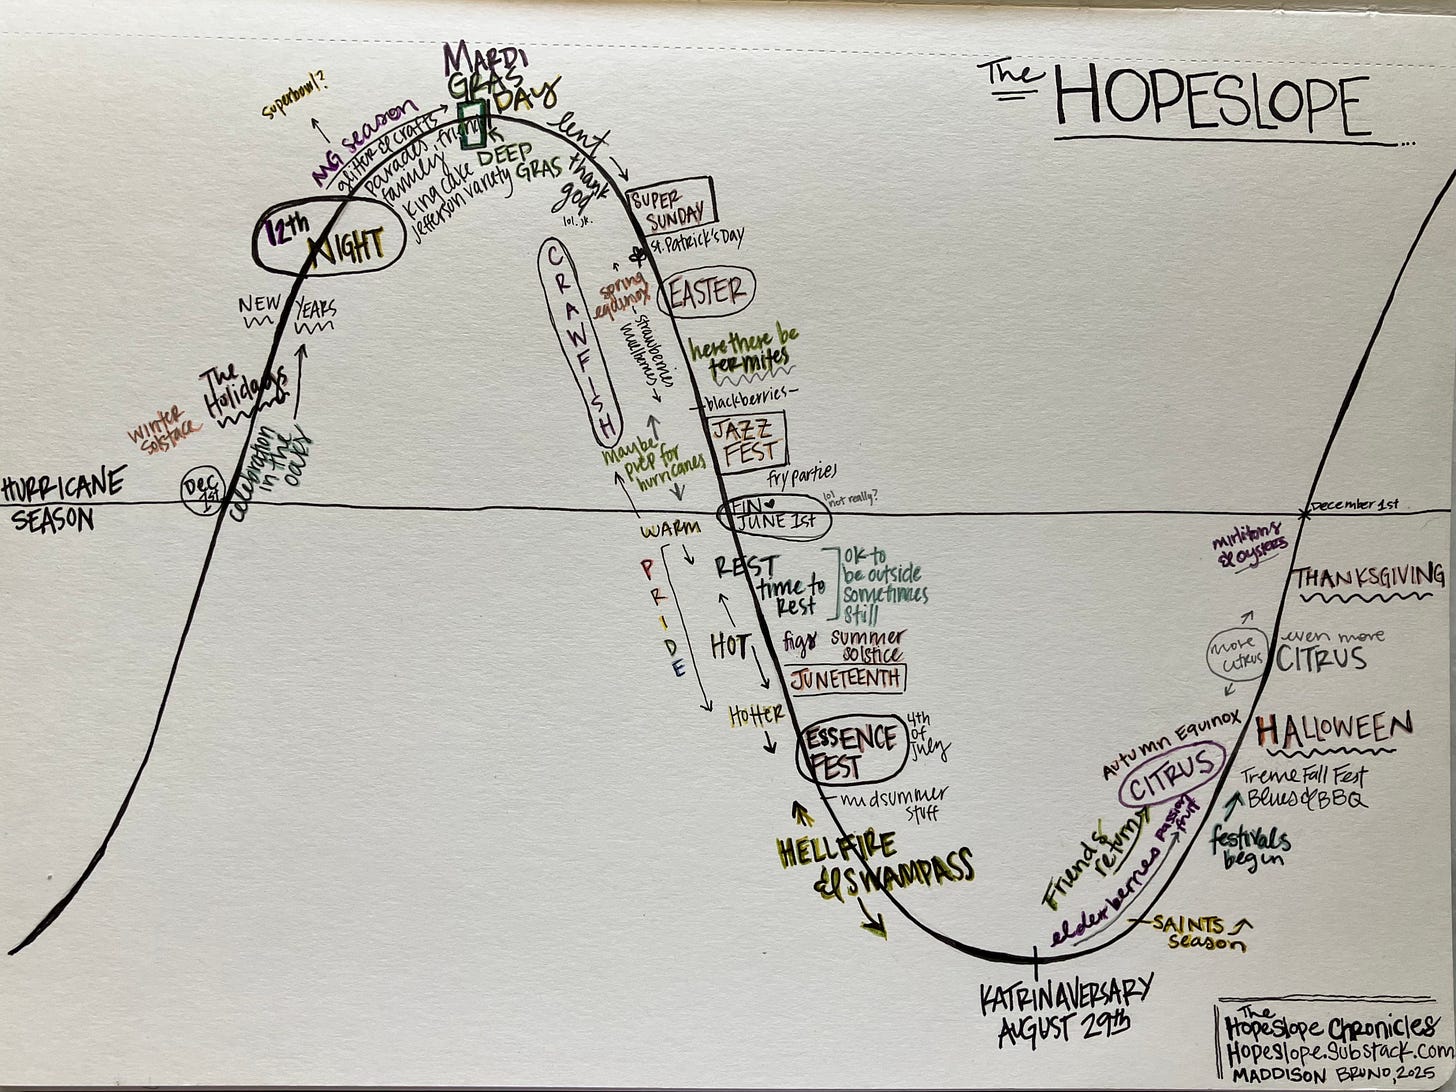 The HOPESLOPE...
Superbowl?
MARDI
GRAS
DAY
MG season
glitter & crafts
parades, friends
family
king cake
Jefferson variety
DEEP
GRAS
lent
thank
god
lol. jk.
12th
NIGHT
NEW YEARS
The
Holidays
winter
Solstace
celebration
in the
oaks
HURRICANE
SEASON
Dec
1st
SUPER
SUNDAY
St. Patrick's Day
CRAWFISH
spring
equinox
EASTER
strawberries
mulberries
here there be
termites
blackberries
JAZZ
FEST
fry parties
Maybe
prep for
hurricanes
FIN
JUNE 1st
lol
not really?
WARM
PRIDE
REST
time to
Rest
OK to
be outside
sometimes
still
HOT
figs
summer
solstice
JUNETEENTH
HOTTER
ESSENCE
FEST
4th
of
July
midsummer
stuff
HELLFIRE
& SWAMPASS
KATRINAVERSARY
AUGUST 29th
SAINTS
season
elderberries
passion
fruit
Friends
return
CITRUS
Autumn Equinox
festivals
begin
Treme Fall Fest
Blues & BBQ
HALLOWEEN
more
citrus
even more
CITRUS
THANKSGIVING
mirlitons
& oysters
December 1st
The
Hopeslope Chronicles
Hopeslope.Substack.com
MADDISON BRUNO, 2025